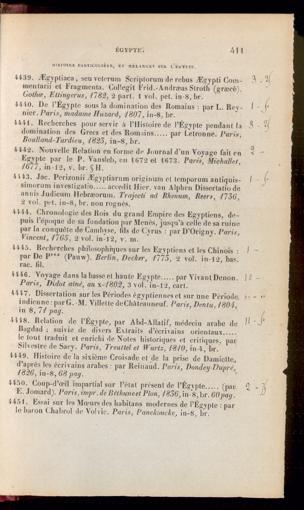 ÉGYPTE. 411
HISTOIRE PARTICULIÈRE, ET MÉLANGES SUR L'ÉGYPTE.
4439. Ægyptiaca, seu veterum Scriptorum de rebus Ægypti Com-
mentarii et Fragmenta. Collegit Frid.-Andræas Stroth (græcè).
Gothæ, Ettingerus, 1782, 2 part. 1 vol. pet. in-8, br.
4440. De l'Égypte sous la domination des Romains : par L. Rey-
nier. Paris, madame Huzard, 1807, in-8, br.
4441. Recherches pour servir à l'Histoire de l'Égypte pendant la
domination des Grecs et des Romains..... par Letronne. Paris,
Boulland-Tardieu, 1823, in-8, br.
4442. Nouvelle Relation en forme de Journal d'un Voyage fait en
Egypte par le P. Vansleb, en 1672 et 1673. Paris, Michallet,
1677, in-12, v. br. § H.
4443. Jac. Perizonii Ægyptiarum originum et temporum antiquis-
simorum investigatio..... accedit Hier. van Alphen Dissertatio de
annis Judicum Hebræorum. Trajecti ad Rhenum, Reers, 1736,
2 vol. pet. in-8, br. non rognés.
4444. Chronologie des Rois du grand Empire des Egyptiens, de-
puis l'époque de sa fondation par Menès, jusqu'à celle de sa ruine
par la conquête de Cambyse, fils de Cyrus : par D'Origny. Paris,
Vincent, 1765, 2 vol. in-12, v. m.
4445. Recherches philosophiques sur les Egyptiens et les Chinois :
par De P*** (Pauw). Berlin, Decker, 1773, 2 vol. in-12, bas.
rac. fil.
4446. Voyage dans la basse et haute Egypte..... par Vivant Denon.
Paris, Didot aîné, an x-1802, 3 vol. in-12, cart.
4447. Dissertation sur les Périodes égyptiennes et sur une Période
indienne : par G. M. Villette de Châteauneuf. Paris, Dentu, 1804,
in 8, 71 pag.
4448. Relation de l'Égypte, par Abd-Allatif, médecin arabe de
Bagdad ; suivie de divers Extraits d'écrivains orientaux.....
le tout traduit et enrichi de Notes historiques et critiques, par
Silvestre de Sacy. Paris, Treuttel et Wurtz, 1810, in-4, br.
4449. Histoire de la sixième Croisade et de la prise de Damiette,
d'après les écrivains arabes : par Reinaud. Paris, Dondey-Dupré,
1826, in-8, 68 pag.
4450. Coup-d'œil impartial sur l'état présent de l'Égypte..... (par
E. Jomard). Paris, impr. de Béthune et Plon, 1836, in-8, br. 60 pag.
4451. Essai sur les Mœurs des habitans modernes de l'Égypte : par
le baron Chabrol de Volvic. Paris, Panckoucke, in-8, br.